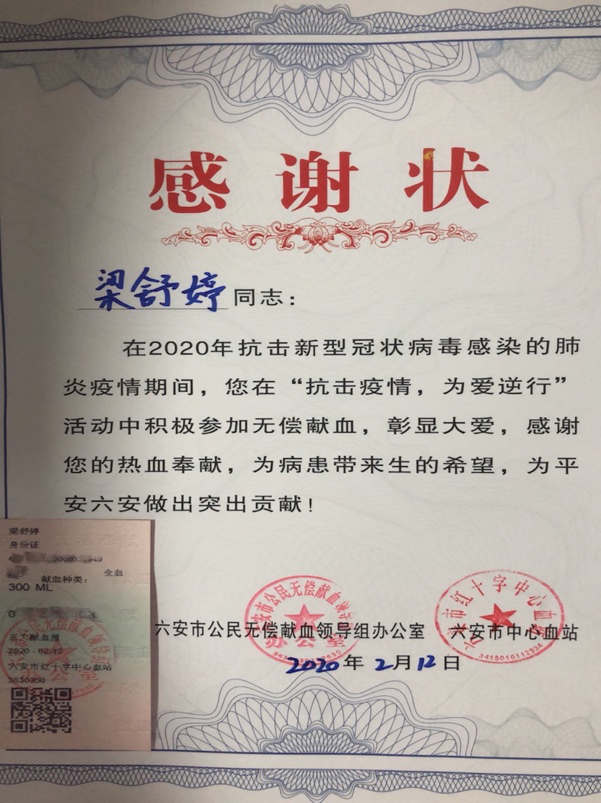 感谢状
梁舒婷 同志：
在2020年抗击新型冠状病毒感染的肺
炎疫情期间，您在“抗击疫情，为爱逆行”
活动中积极参加无偿献血，彰显大爱，感谢
您的热血奉献，为病患带来生的希望，为平
安六安做出突出贡献！
六安市公民无偿献血领导组办公室 六安市中心血站
2020年2月12日
六安市红十字中心血站
3415010112934
办公室
梁舒婷
身份证
献血种类： 全血
300 ML
献血屋
2020-02-12
六安市红十字中心血站